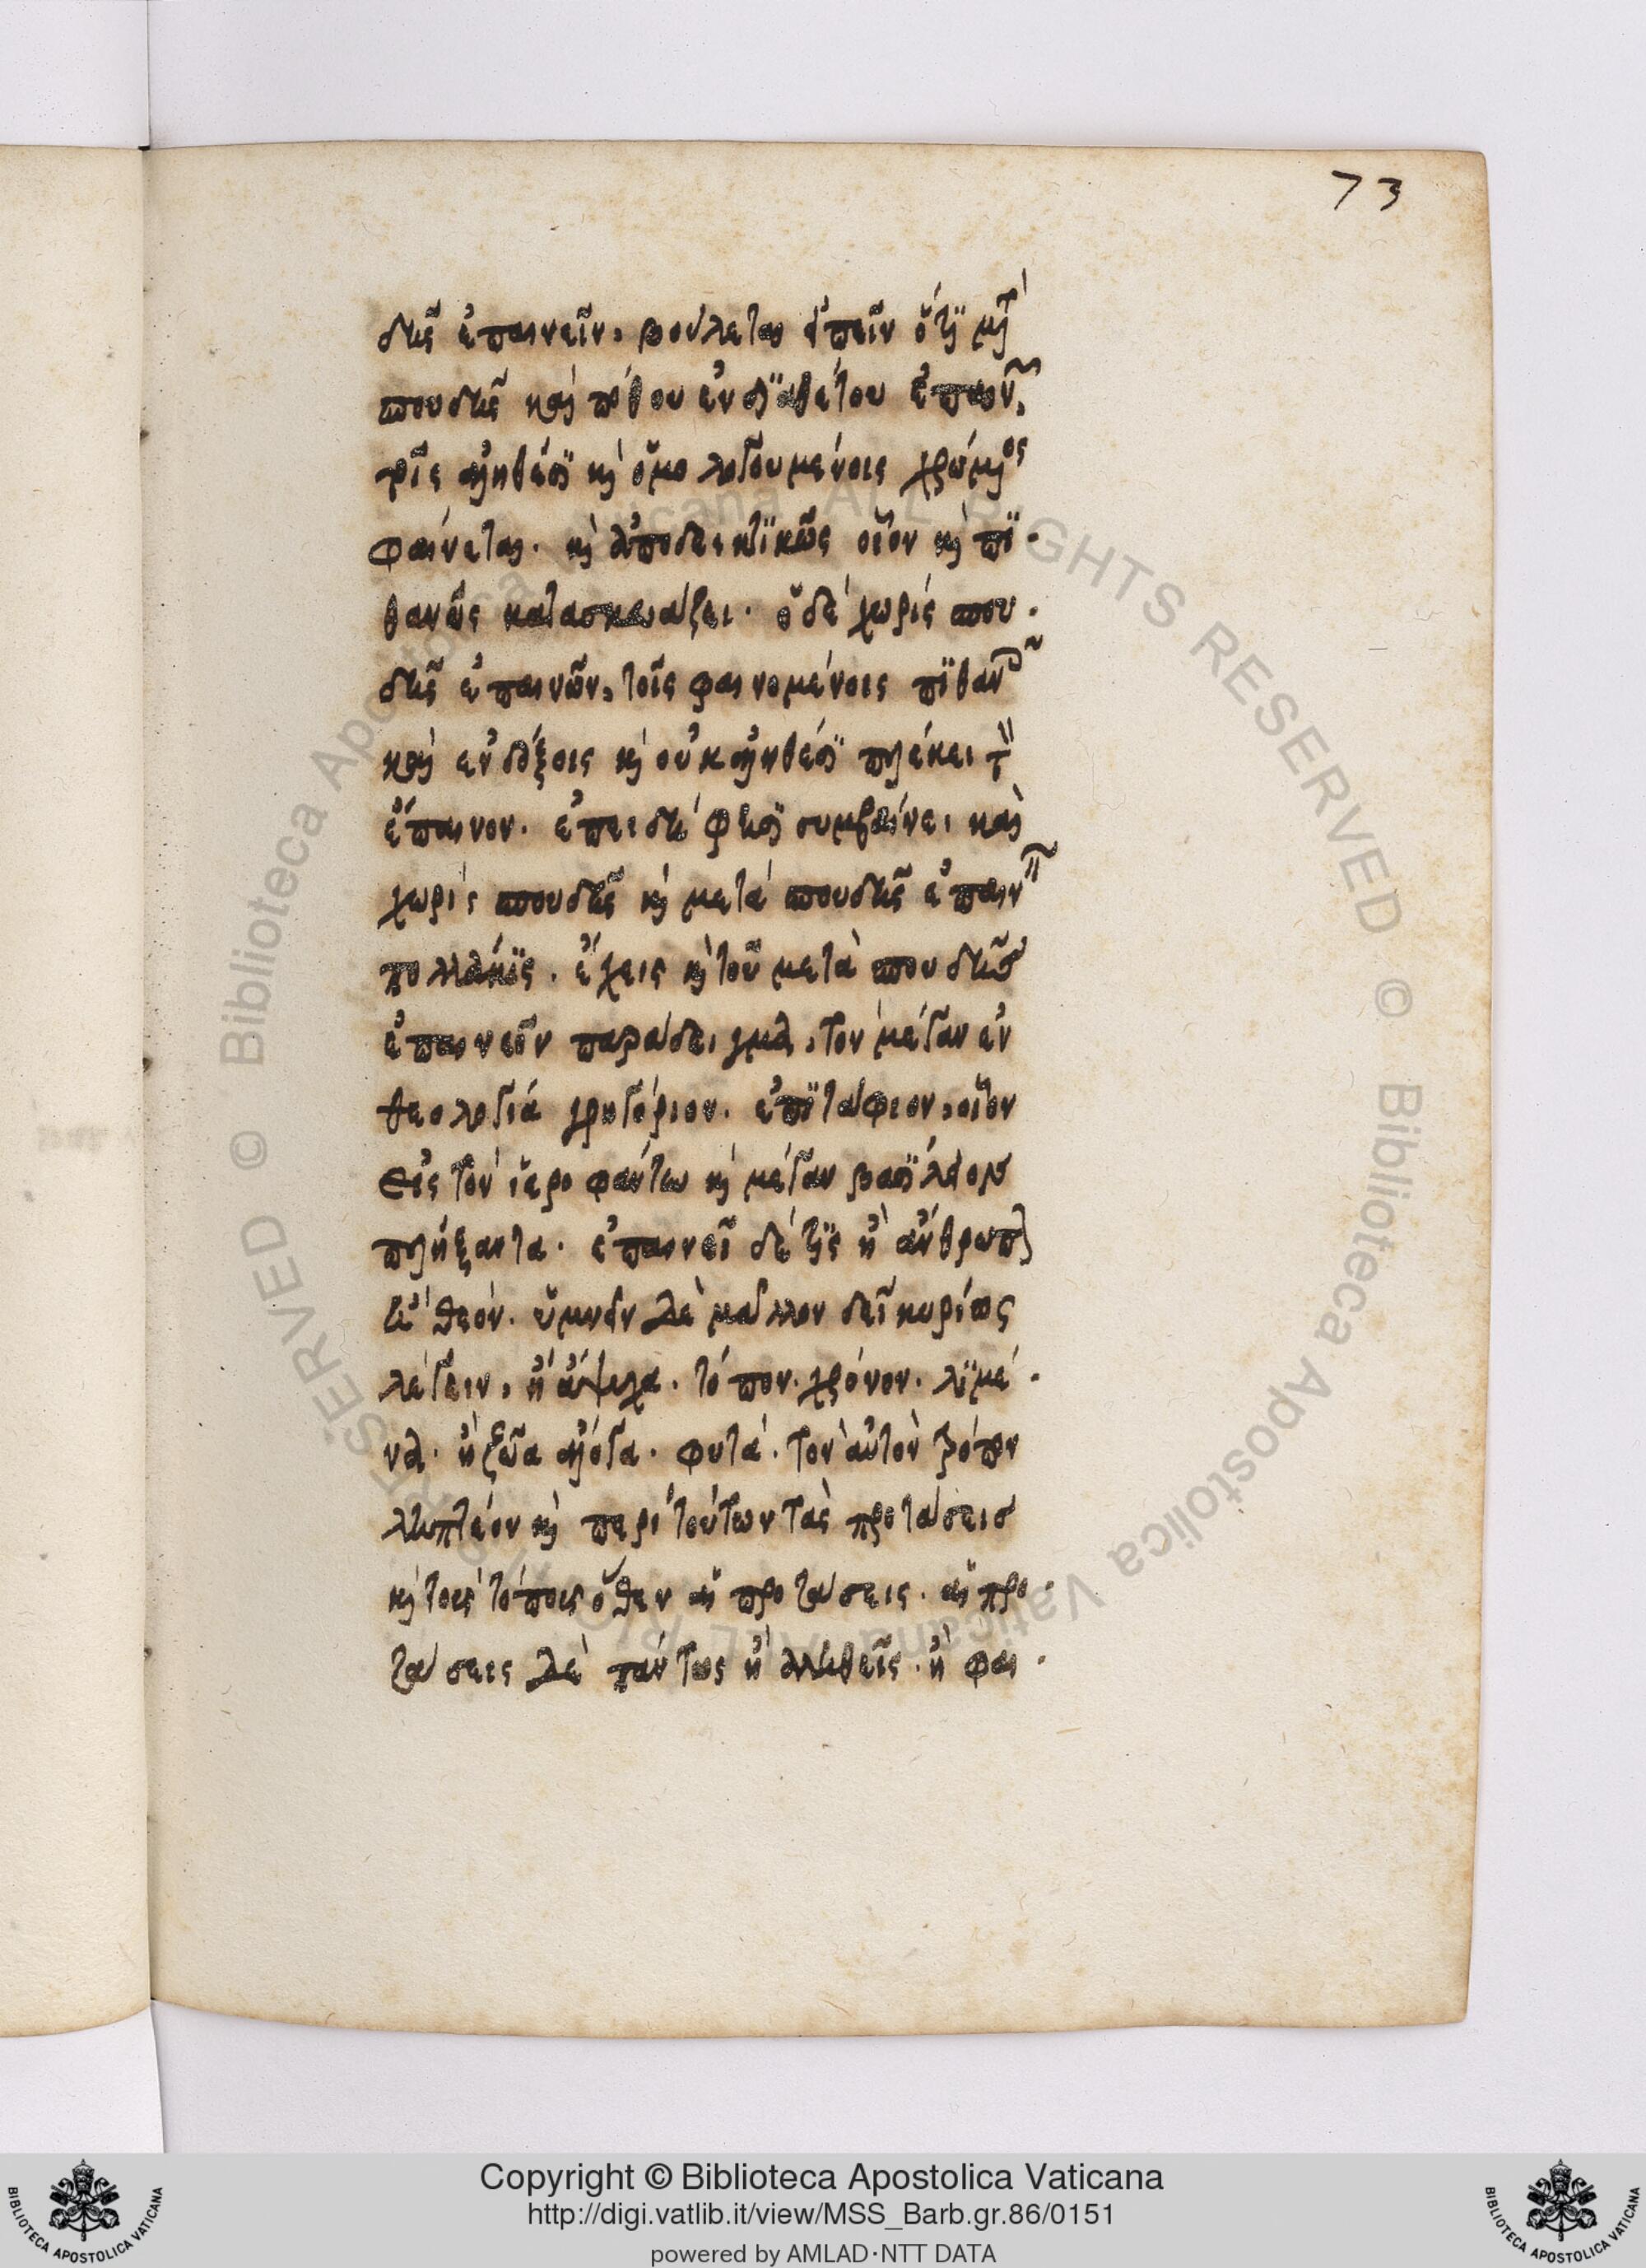 73
δῆς ἐπαινεῖν, βούλεται εἰπεῖν ὅτι ὁ μετὰ
σπουδῆς καὶ πόθου ἐνδιαθέτου ἐπαινῶν,
τοῖς ἀληθέσι καὶ ὁμολογουμένοις χρώμενος
φαίνεται. καὶ ἀποδεικτικῶς οἷον καὶ πι
θανῶς κατασκευάζει. ὁ δὲ χωρὶς σπου
δῆς ἐπαινῶν, τοῖς φαινομένοις πιθανοῖς
καὶ ἐνδόξοις καὶ οὐκ ἀληθέσι πλέκει τὸν
ἔπαινον. ἐπειδή φησι συμβαίνει καὶ
χωρὶς σπουδῆς καὶ μετὰ σπουδῆς ἐπαινεῖν
πολλάκις. ἔχεις καὶ τοῦ μετὰ σπουδῆς
ἐπαινεῖν παράδειγμα, τὸν μέγαν ἐν
θεολογία γρηγόριον. ἐπιτάφιον, οἷον
εἰς τὸν ἱεροφάντην καὶ μέγαν βασίλειον
πλήξαντα. ἐπαινεῖ δέ τις ἢ ἄνθρωπον
ἢ θεόν. ὑμνεῖν δὲ μᾶλλον δεῖ κυρίως
λέγειν, ἢ ἄψυχα. τόπον. χρόνον. λιμέ
να. ἢ ζῶα ἄλογα. φυτά. τὸν αὐτὸν τρόπον
ληπτέον καὶ περὶ τούτων τὰς προτάσεις
καὶ τοὺς τόπους ὅθεν αἱ προτάσεις. αἱ προ
τάσεις δὲ πάντως ἢ ἀληθεῖς. ἢ φαι
Copyright © Biblioteca Apostolica Vaticana
http://digi.vatlib.it/view/MSS_Barb.gr.86/0151
powered by AMLAD·NTT DATA